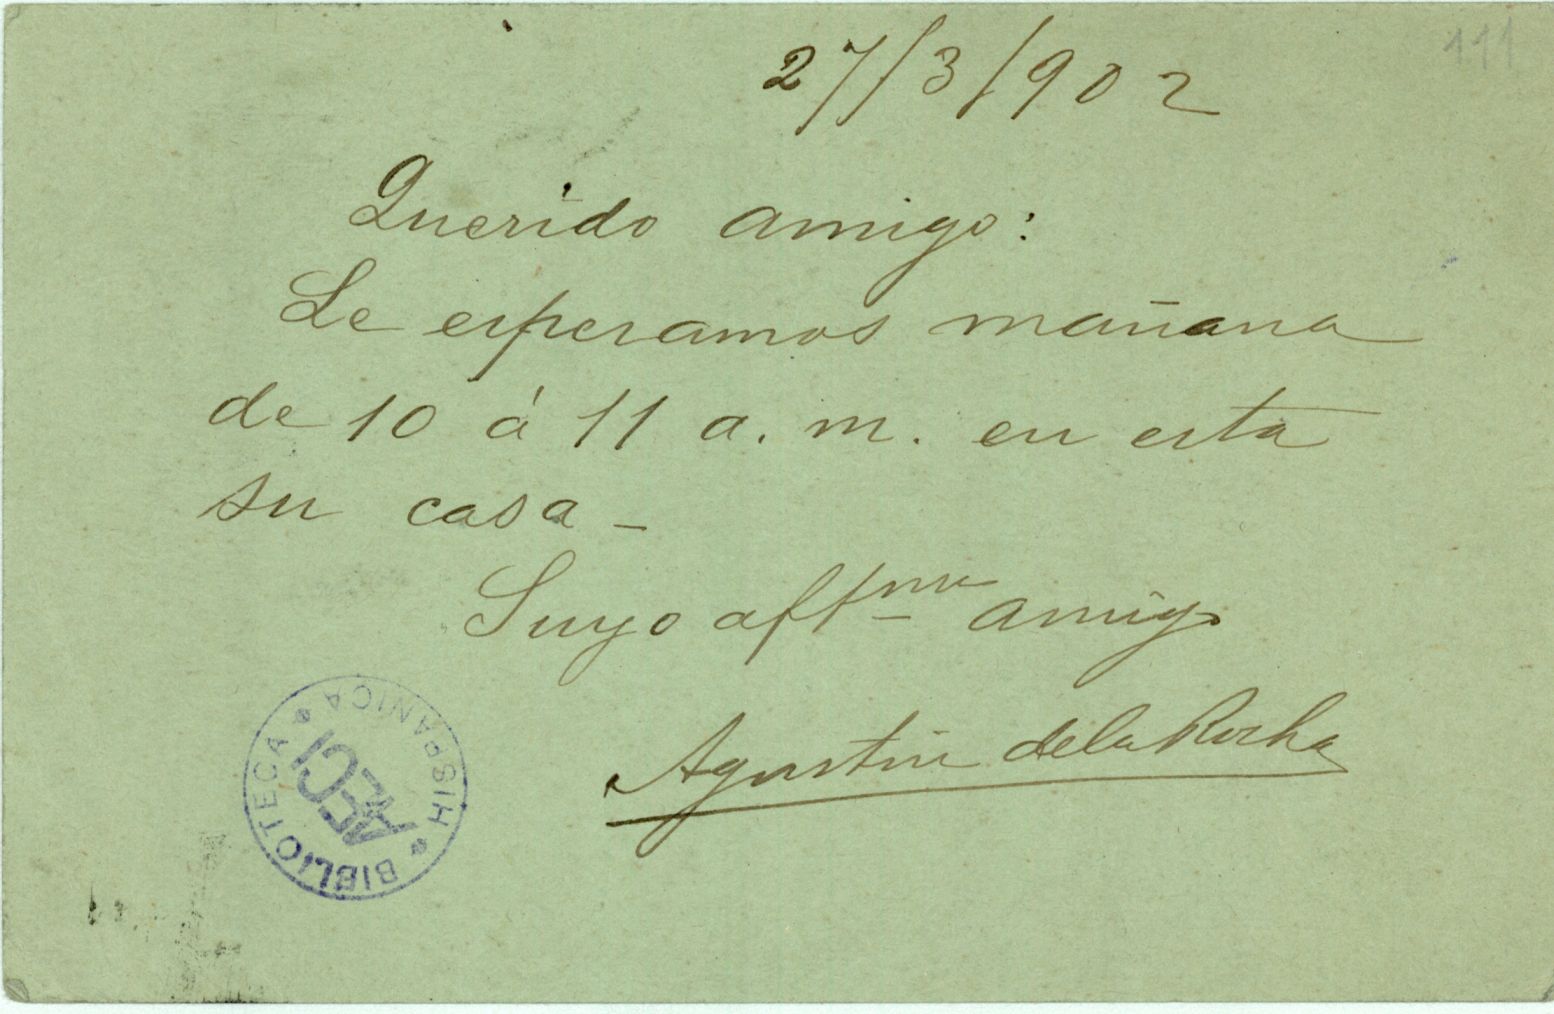 111
27/3/902
Querido amigo:
Le esperamos mañana
de 10 á 11 a. m. en esta
su casa _
Suyo afftmo amigo
Agustín de la Rocha
BIBLIOTECA HISPANICA
AECI